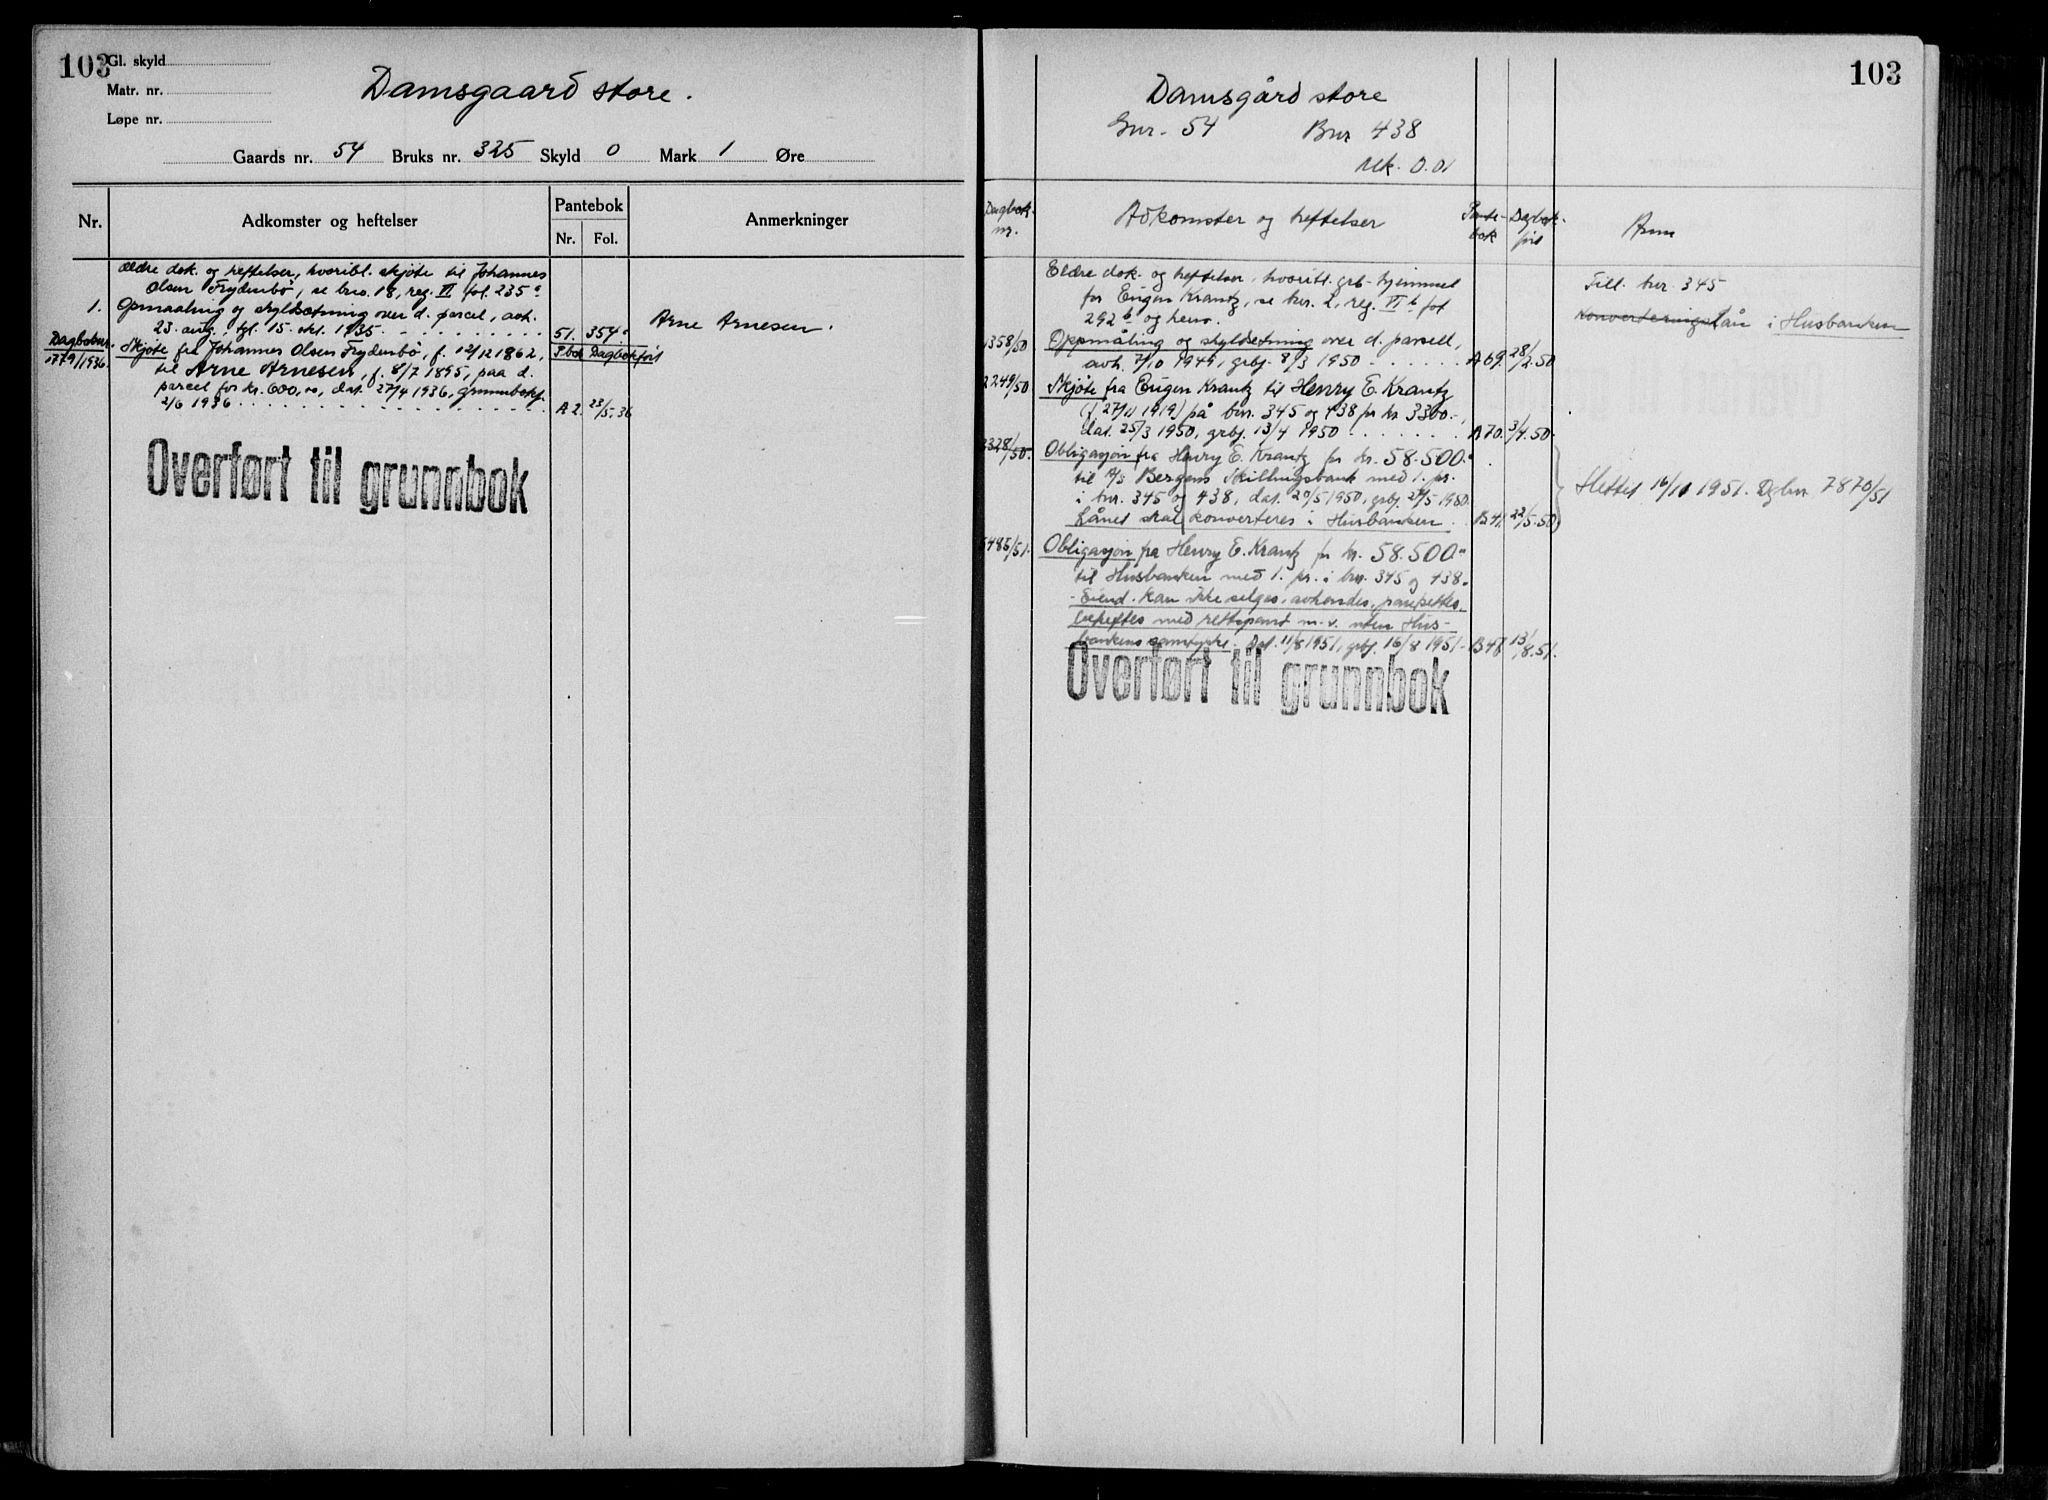 103
Gl. skyld
Matr. nr.
Løpe nr.
Damsgaard store.
Gaards nr. 54 Bruks nr. 325 Skyld 0 Mark 1 Øre
Nr. Adkomster og heftelser Pantebok Anmerkninger
Nr. Fol.
Ældre dok. og heftelser, hvoribl. skjøte til Johannes
Olsen Frydenbø, se bno. 18, reg. VI fol. 235a
1. Opmaaling og skyldsætning over d. parcel, avh.
23. aug., tgl. 15. okt. 1935 51. 354.
Arne Arnesen.
Dagboknr. P.bok Dagbokført
1779/1936. Skjøte fra Johannes Olsen Frydenbø, f. 12/12 1862,
til Arne Arnesen, f. 8/7 1895, paa d.
parcel for kr. 600,00, dat. 27/4 1936, grunnbokf.
2/6 1936 A2. 23/5.36
Overført til grunnbok
103
Damsgård store
Gnr. 54 Bnr 438
Mk. 0.01
Dagbok- nr. Adkomster og heftelser Pante- bok Dagbok- ført Anm
Eldre dok. og heftelser, hvoribl. grb. hjemmel
for Eugen Krantz, se bnr. 2, reg. VI b fol
292 b og henv.
Till. bnr. 345
konverteringslån i Husbanken
1358/50 Oppmåling og skyldsetning over d. parsell,
avh. 7/10 1949, grbf. 8/3 1950 A69. 28/2.50
2249/50 Skjøte fra Eugen Krantz til Henry E. Krantz
(f 27/11 1919) på bnr. 345 og 438 for kr 3300.-,
dat. 25/3 1950, grbf. 13/4 1950 A70. 3/4.50.
3328/50. Obligasjon fra Henry E. Krantz for kr. 58.500.-
til A/S Bergens Skillingsbank med 1. pr.
i bnr. 345 og 438, dat. 20/5 1950, grbf. 27/5 1950.
Lånet skal konverteres i Husbanken B41 22/5.50
Slettet 16/11 1951. Dgbnr. 7870/51
5485/51. Obligasjon fra Henry E. Krantz for kr. 58.500.-
til Husbanken med 1. pr. i bnr. 345 og 438.
- Eiend. kan ikke selges, avhendes, pantsettes,
beheftes med rettspant m.v. uten Hus-
bankens samtykke. Dat. 11/8 1951, grbf. 16/8 1951. B47 13/8.51.
Overført til grunnbok